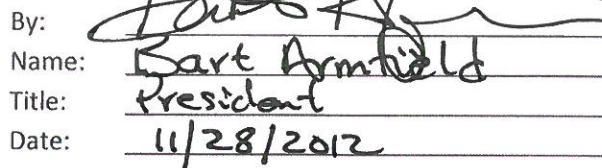 By:
Name: Bart Armfield
Title: President
Date: 11/28/2012